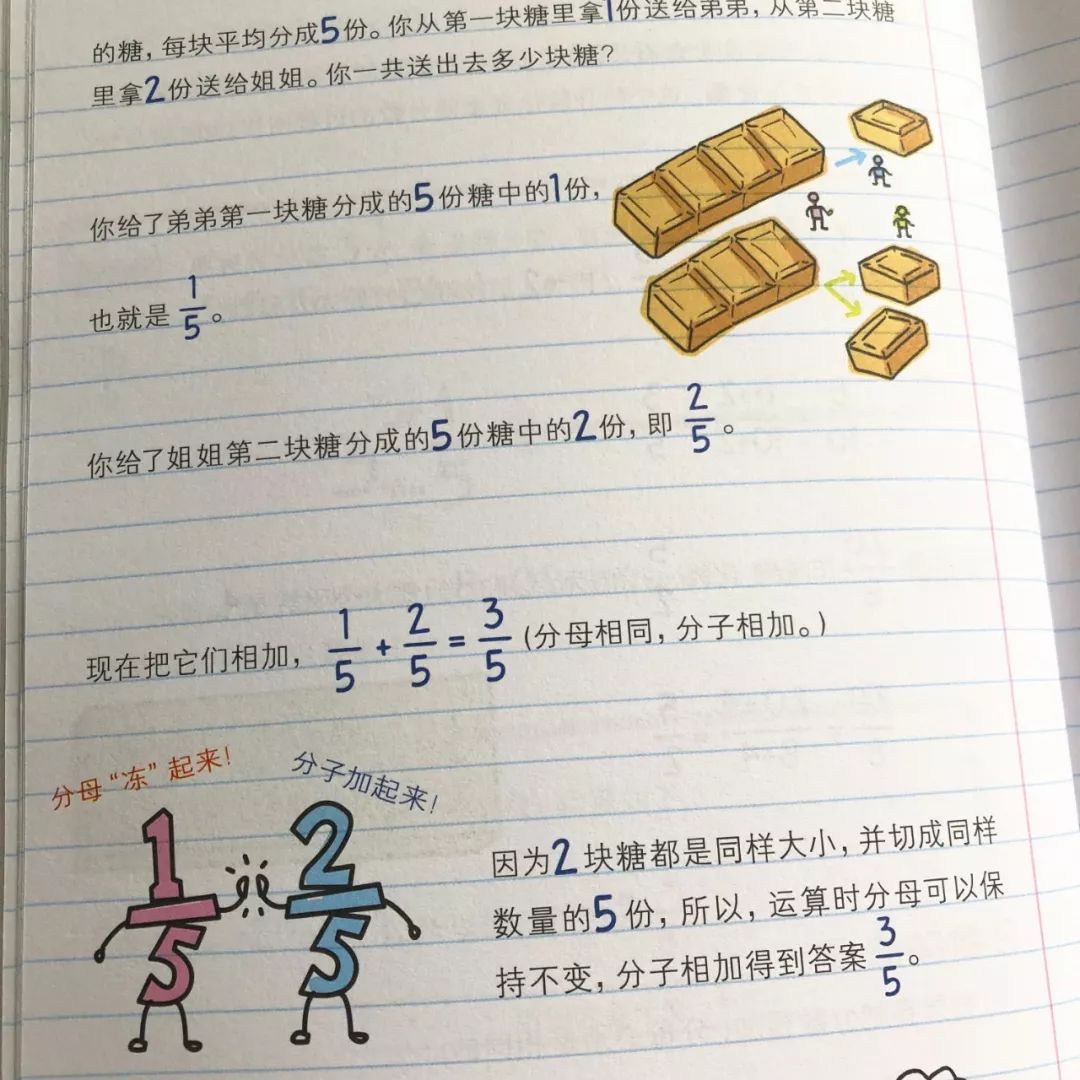 的糖，每块平均分成5份。你从第一块糖里拿1份送给弟弟，从第二块糖
里拿2份送给姐姐。你一共送出去多少块糖？
你给了弟弟第一块糖分成的5份糖中的1份，
也就是 1/5。
你给了姐姐第二块糖分成的5份糖中的2份，即 2/5。
现在把它们相加， 1/5 + 2/5 = 3/5 (分母相同，分子相加。)
分母“冻”起来！
分子加起来！
1/5
2/5
因为2块糖都是同样大小，并切成同样
数量的5份，所以，运算时分母可以保
持不变，分子相加得到答案 3/5。